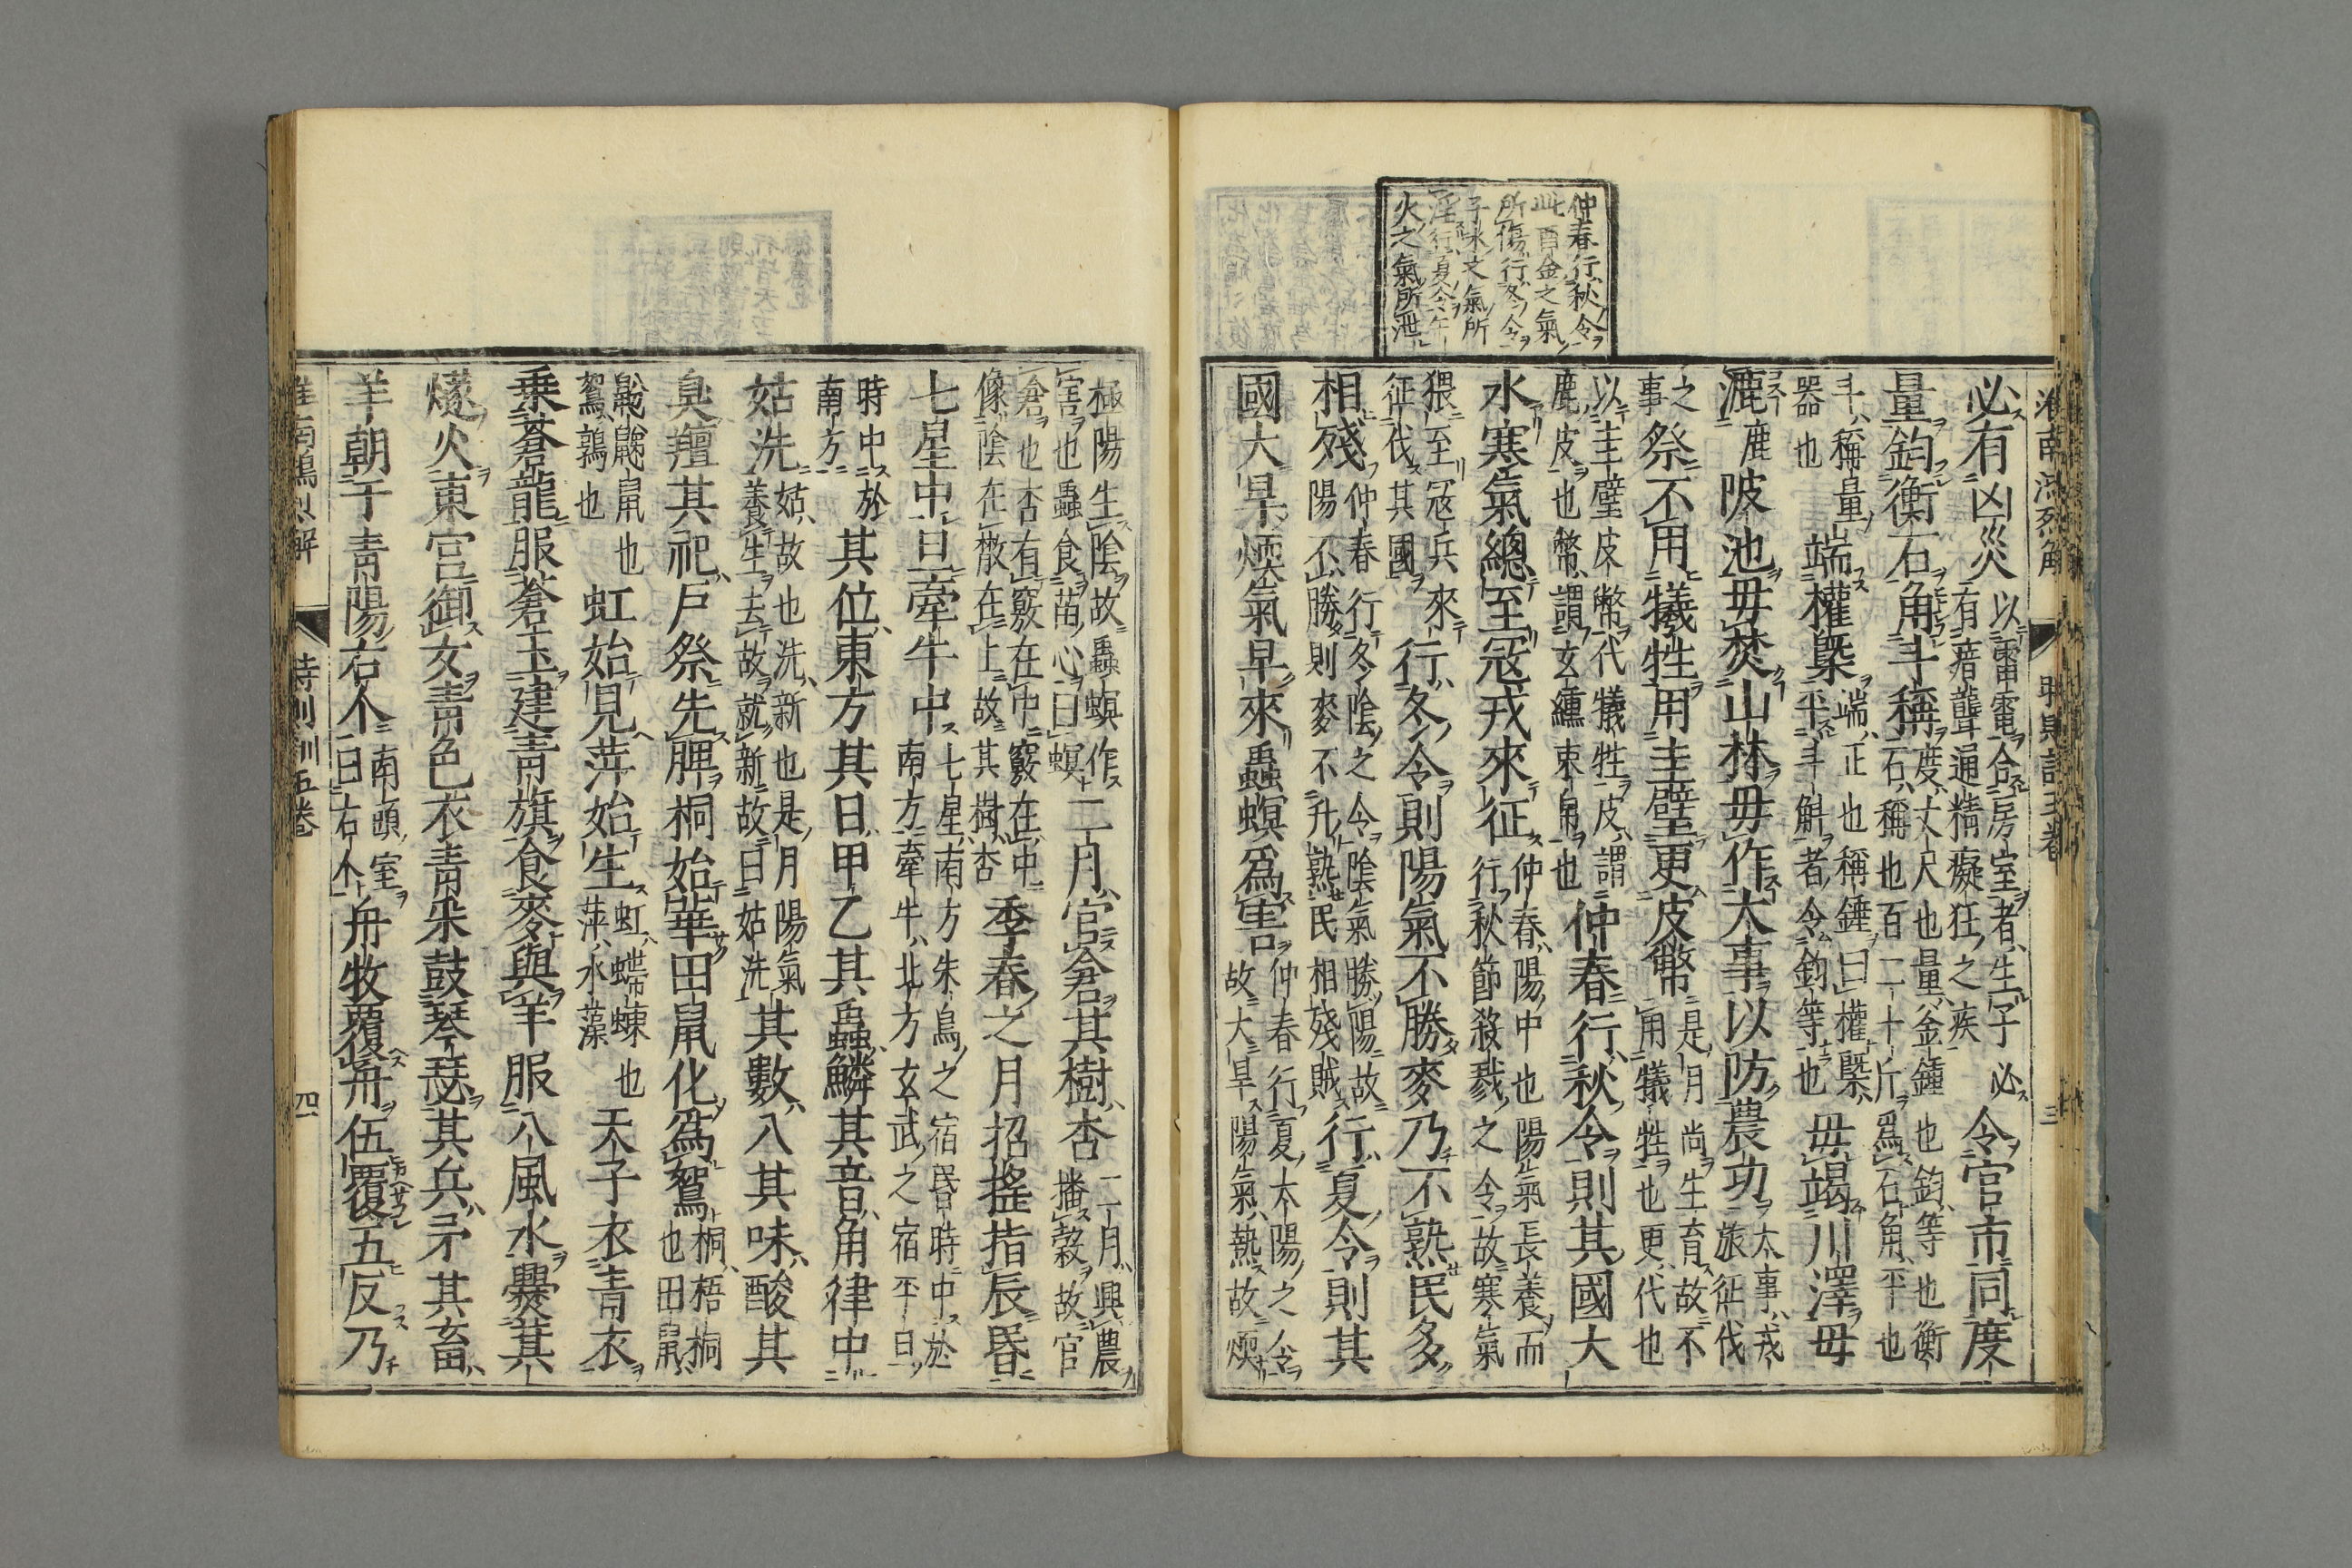 淮南鴻烈解
時則訓五卷
三
仲春行秋令
此酉金之氣
所傷行冬令
子水之氣所
淫行夏令午
火之氣所泄
必有凶災以雷電合房室者生子必有瘖聾通精癡狂之疾令官市同度
量鈞衡石角斗稱度丈尺也量釜鍾也鈞等也衡石稱也百二十斤爲石角平也
斗稱量器也端權槩端正也稱錘曰權槩平斗斛者令鈞等也毋竭川澤毋
漉鹿陂池毋焚山林毋作大事以防農功大事戎旅征伐
之事祭不用犧牲用圭璧更皮幣是月尚生育故不用犧牲也更代也
以圭璧皮幣代犧牲皮謂鹿皮也幣謂玄纁束帛也仲春行秋令則其國大
水寒氣總至冦戎來征仲春陽中也陽氣長養而行秋節殺戮之令故寒氣
猥至冦兵來征伐其國行冬令則陽氣不勝麥乃不熟民多
相殘仲春行冬陰之令陰氣勝陽故陽不勝則麥不升熟民相殘賊行夏令則其
國大旱煖氣早來蟲螟爲害仲春行夏太陽之令故大旱陽氣熱故煖
極陽生陰故蟲螟作害也蟲食苗心曰螟二月官倉其樹杏二月興農播穀故官
倉也杏有竅在中竅在中像陰在㪚在上故其樹杏季春之月招搖指辰昏
七星中旦牽牛中七星南方朱鳥之宿昏時中於南方牽牛北方玄武之宿平旦
時中於南方其位東方其日甲乙其蟲鱗其音角律中
姑洗姑故也洗新也是月陽氣養生去故就新故曰姑洗其數八其味酸其
臭羶其祀戶祭先脾桐始華田鼠化爲鴽桐梧桐也田鼠
鼢鼸鼠也鴽鶉也虹始見萍始生虹螮蝀也萍水藻天子衣青衣
乗蒼龍服蒼玉建青旗食麥與羊服八風水爨萁
燧火東宮御女青色衣青采鼓琴瑟其兵矛其畜
羊朝于青陽右个南頭室曰右个舟牧覆舟伍覆五反乃
淮南鴻烈解
時則訓五卷
四